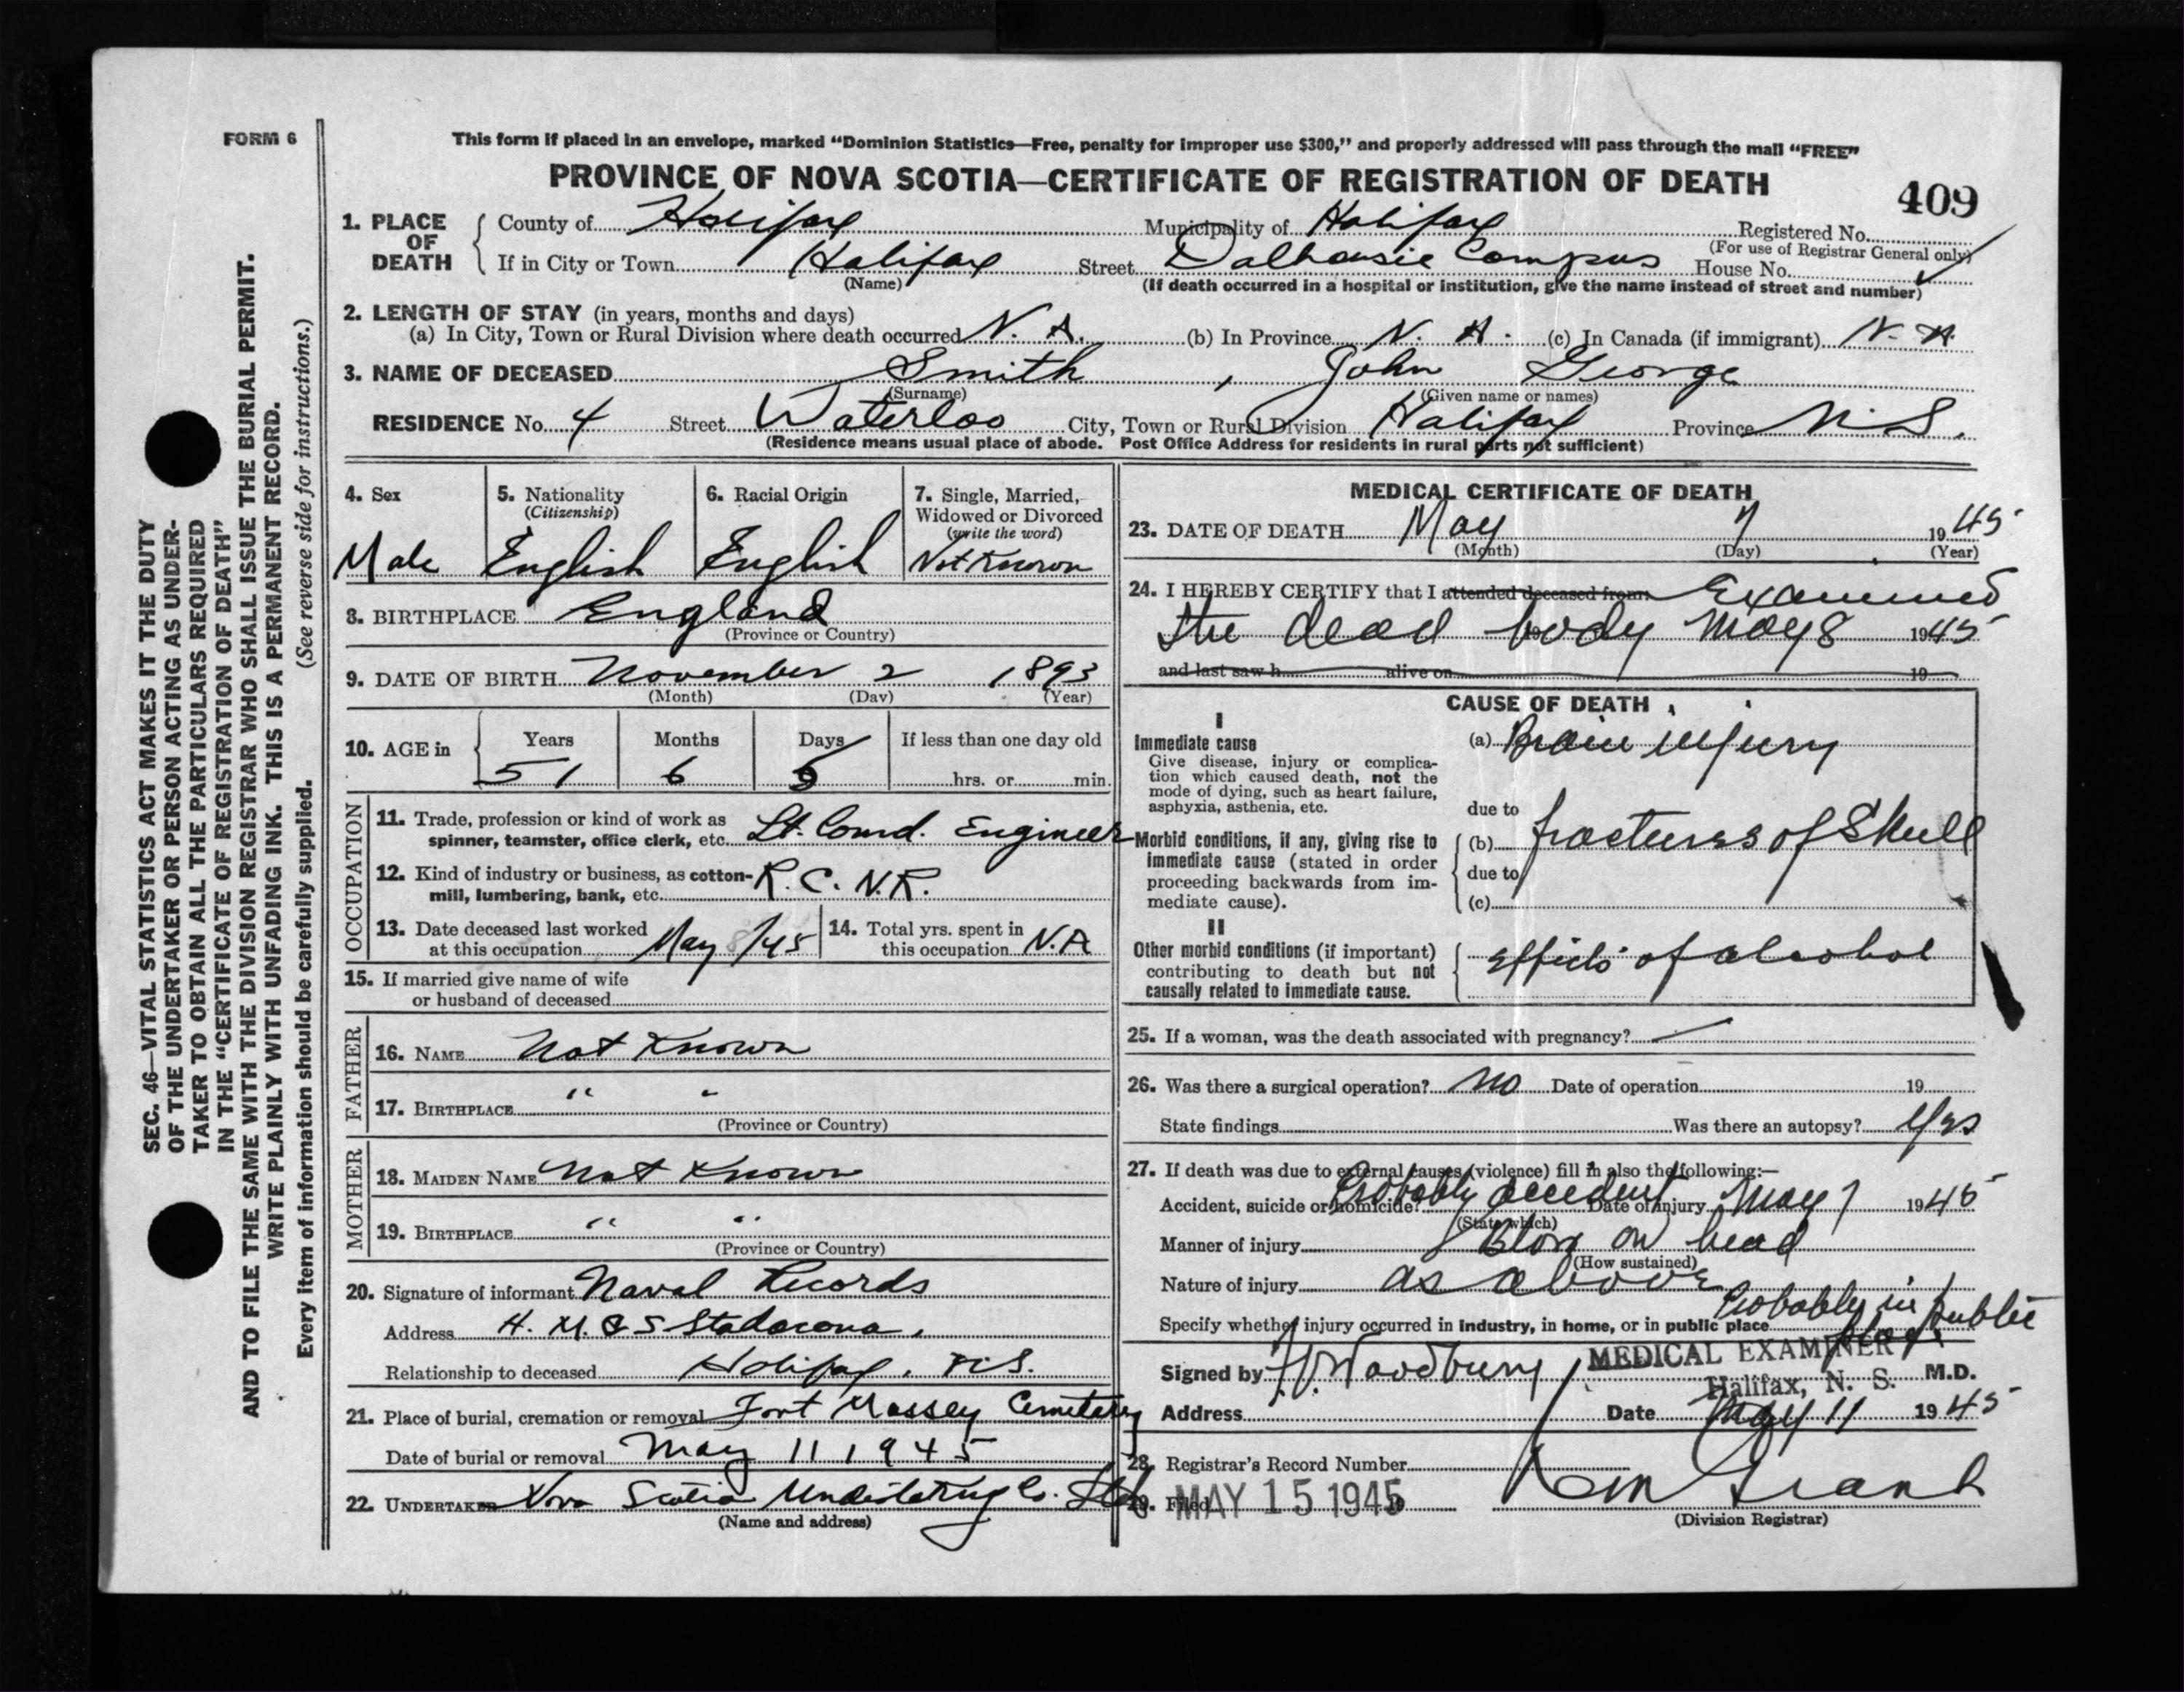 FORM 6
This form if placed in an envelope, marked “Dominion Statistics—Free, penalty for improper use $300,” and properly addressed will pass through the mail “FREE”
PROVINCE OF NOVA SCOTIA—CERTIFICATE OF REGISTRATION OF DEATH
409
1. PLACE OF DEATH
County of Halifax Municipality of Halifax Registered No.
(For use of Registrar General only)
If in City or Town Halifax Street Dalhousie Campus House No.
(Name) (If death occurred in a hospital or institution, give the name instead of street and number)
2. LENGTH OF STAY (in years, months and days)
(a) In City, Town or Rural Division where death occurred N. A. (b) In Province N. A. (c) In Canada (if immigrant) N. A.
3. NAME OF DECEASED Smith, John George
(Surname) (Given name or names)
RESIDENCE No. 4 Street Waterloo City, Town or Rural Division Halifax Province N.S.
(Residence means usual place of abode. Post Office Address for residents in rural parts not sufficient)
4. Sex Male
5. Nationality (Citizenship) English
6. Racial Origin English
7. Single, Married, Widowed or Divorced (write the word) Not Known
8. BIRTHPLACE England
(Province or Country)
9. DATE OF BIRTH November 2 1893
(Month) (Day) (Year)
10. AGE in Years Months Days If less than one day old
51 6 5 hrs. or min.
OCCUPATION
11. Trade, profession or kind of work as spinner, teamster, office clerk, etc. Lt. Comd. Engineer
12. Kind of industry or business, as cotton-mill, lumbering, bank, etc. R.C.N.R.
13. Date deceased last worked at this occupation May 8/45
14. Total yrs. spent in this occupation N.A
15. If married give name of wife
or husband of deceased
FATHER
16. NAME Not Known
17. BIRTHPLACE " "
(Province or Country)
MOTHER
18. MAIDEN NAME Not Known
19. BIRTHPLACE " "
(Province or Country)
20. Signature of informant Naval Records
Address H.M.C.S Stadacona,
Relationship to deceased Halifax, N.S.
21. Place of burial, cremation or removal Fort Massey Cemetery
Date of burial or removal May 11 1945
22. UNDERTAKER Nova Scotia Undertaking Co. Ltd
(Name and address)
MEDICAL CERTIFICATE OF DEATH
23. DATE OF DEATH May 7 1945
(Month) (Day) (Year)
24. I HEREBY CERTIFY that I attended deceased from: Examined
the dead body May 8 1945
and last saw h alive on 19
CAUSE OF DEATH
I
Immediate cause (a) Brain injury
Give disease, injury or complica-
tion which caused death, not the
mode of dying, such as heart failure,
asphyxia, asthenia, etc.
due to
Morbid conditions, if any, giving rise to (b) fractures of Skull
immediate cause (stated in order
proceeding backwards from im- due to
mediate cause). (c)
II
Other morbid conditions (if important) effects of alcohol
contributing to death but not
causally related to immediate cause.
25. If a woman, was the death associated with pregnancy? —
26. Was there a surgical operation? No Date of operation 19
State findings Was there an autopsy? Yes
27. If death was due to external causes (violence) fill in also the following:—
Accident, suicide or homicide? Probably accident Date of injury May 7 1945
(State which)
Manner of injury Blow on head
(How sustained)
Nature of injury as above
Specify whether injury occurred in industry, in home, or in public place Probably in public place
Signed by Woodbury MEDICAL EXAMINER M.D.
Halifax, N. S.
Address Date May 11 1945
28. Registrar's Record Number
29. Filed MAY 15 1945 19
Grant
(Division Registrar)
SEC. 46—VITAL STATISTICS ACT MAKES IT THE DUTY
OF THE UNDERTAKER OR PERSON ACTING AS UNDER-
TAKER TO OBTAIN ALL THE PARTICULARS REQUIRED
IN THE “CERTIFICATE OF REGISTRATION OF DEATH”
AND TO FILE THE SAME WITH THE DIVISION REGISTRAR WHO SHALL ISSUE THE BURIAL PERMIT.
WRITE PLAINLY WITH UNFADING INK. THIS IS A PERMANENT RECORD.
Every item of information should be carefully supplied. (See reverse side for instructions.)